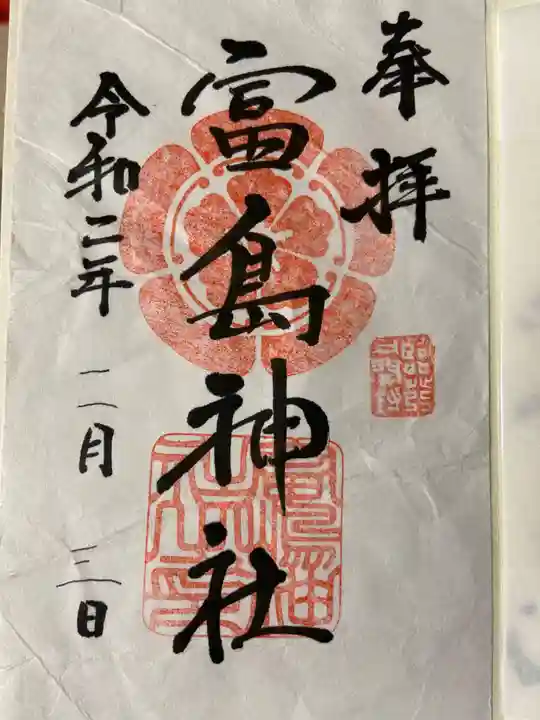 奉拝
富島神社
令和二年 二月 三日